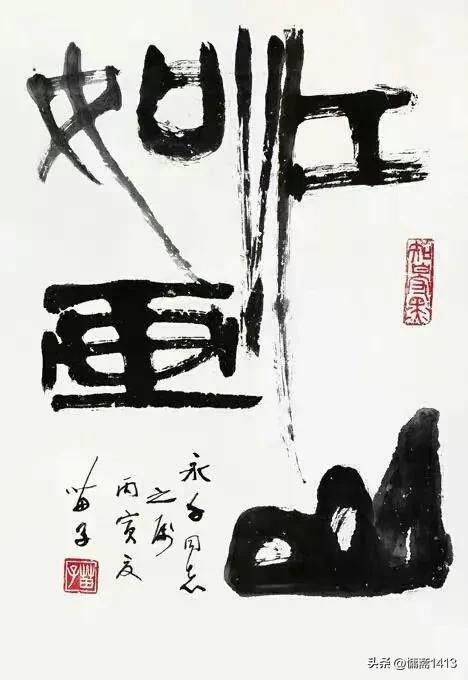 江山
如画
永 同志
之属
丙寅夏
苗子
苗子
头条 @慵斋1413